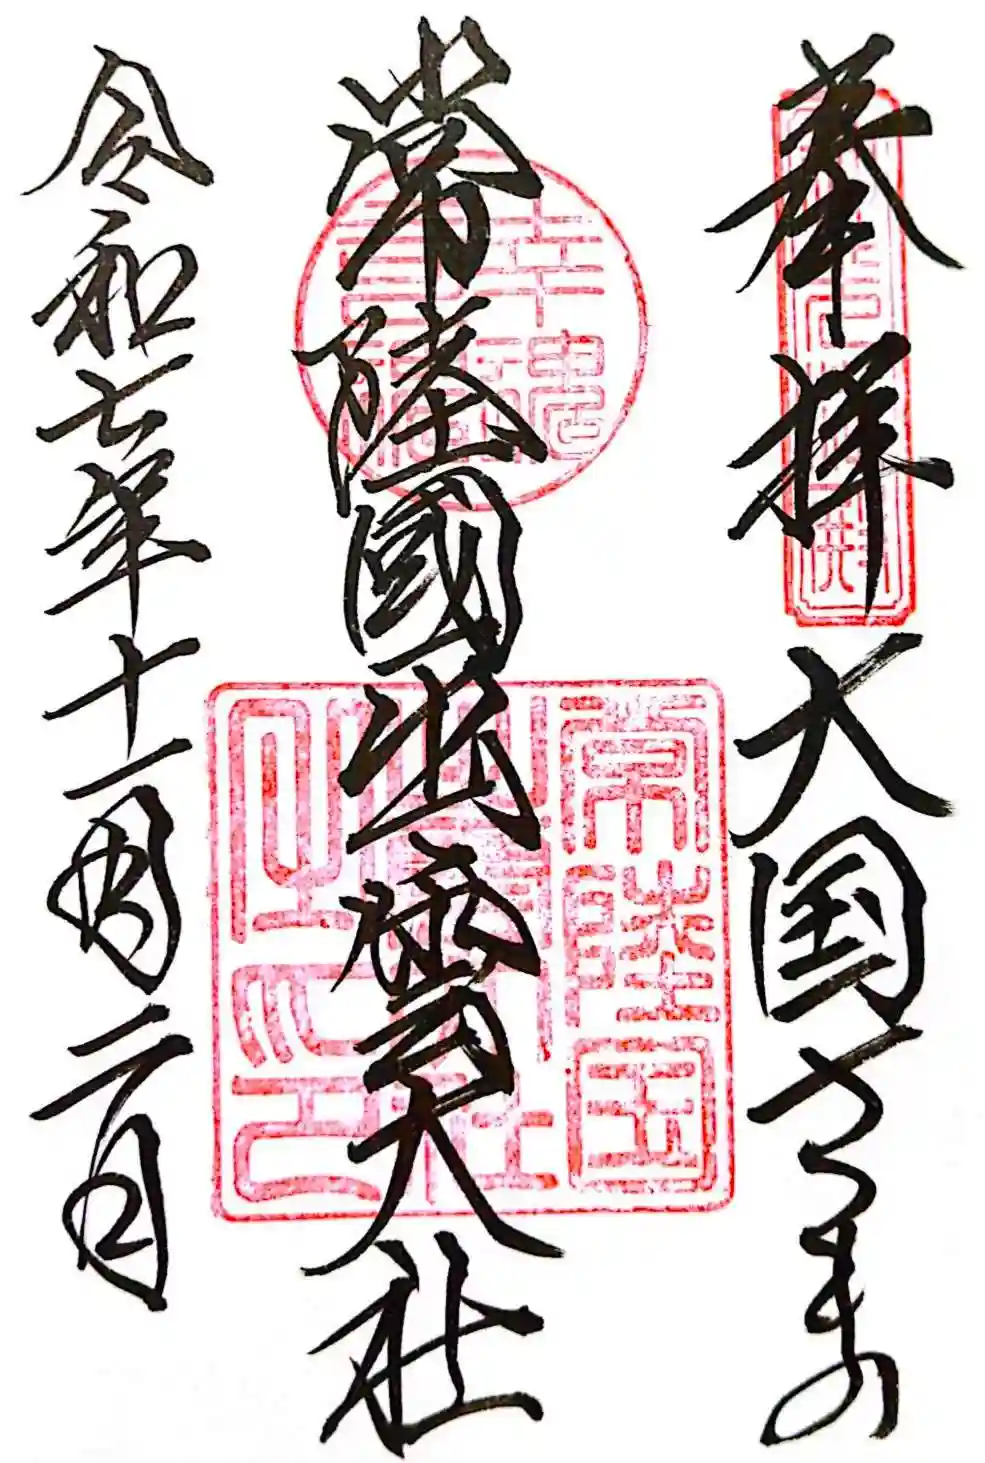 奉拝 大国さま
常陸國出雲大社
令和七年十一月二日
幸魂
奇魂
常陸国
出雲大社
之印